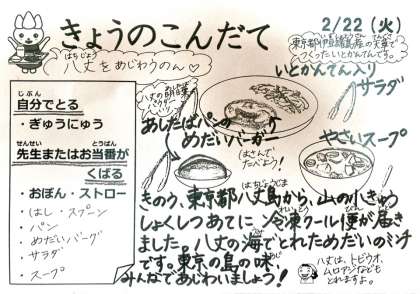 きょうのこんだて
2/22(火)
はちじょう
八丈をめじわうのん♡
東京都伊豆諸島産の天草で
つくったいとかんてんです。
いとかんてん入り
サラダ
じぶん
自分でとる
・ぎゅうにゅう
せんせい とうばん
先生またはお当番が
くばる
・おぼん・ストロー
・はし・スプーン
・パン
・めだいバーグ
・サラダ
・スープ
八丈の明日葉
パウダー
あしたばパンの
めだいバーガー
はさんで
たべよう!
やさいスープ
きのう、東京都八丈島から、山の小きゅう
しょくしつあてに冷凍クール便が届き
ました。八丈の海でとれためだいのミンチ
です。東京の島の味、
みんなであじわいましょう!
八丈は、トビウオ、
ムロアジなども
とれますよ。